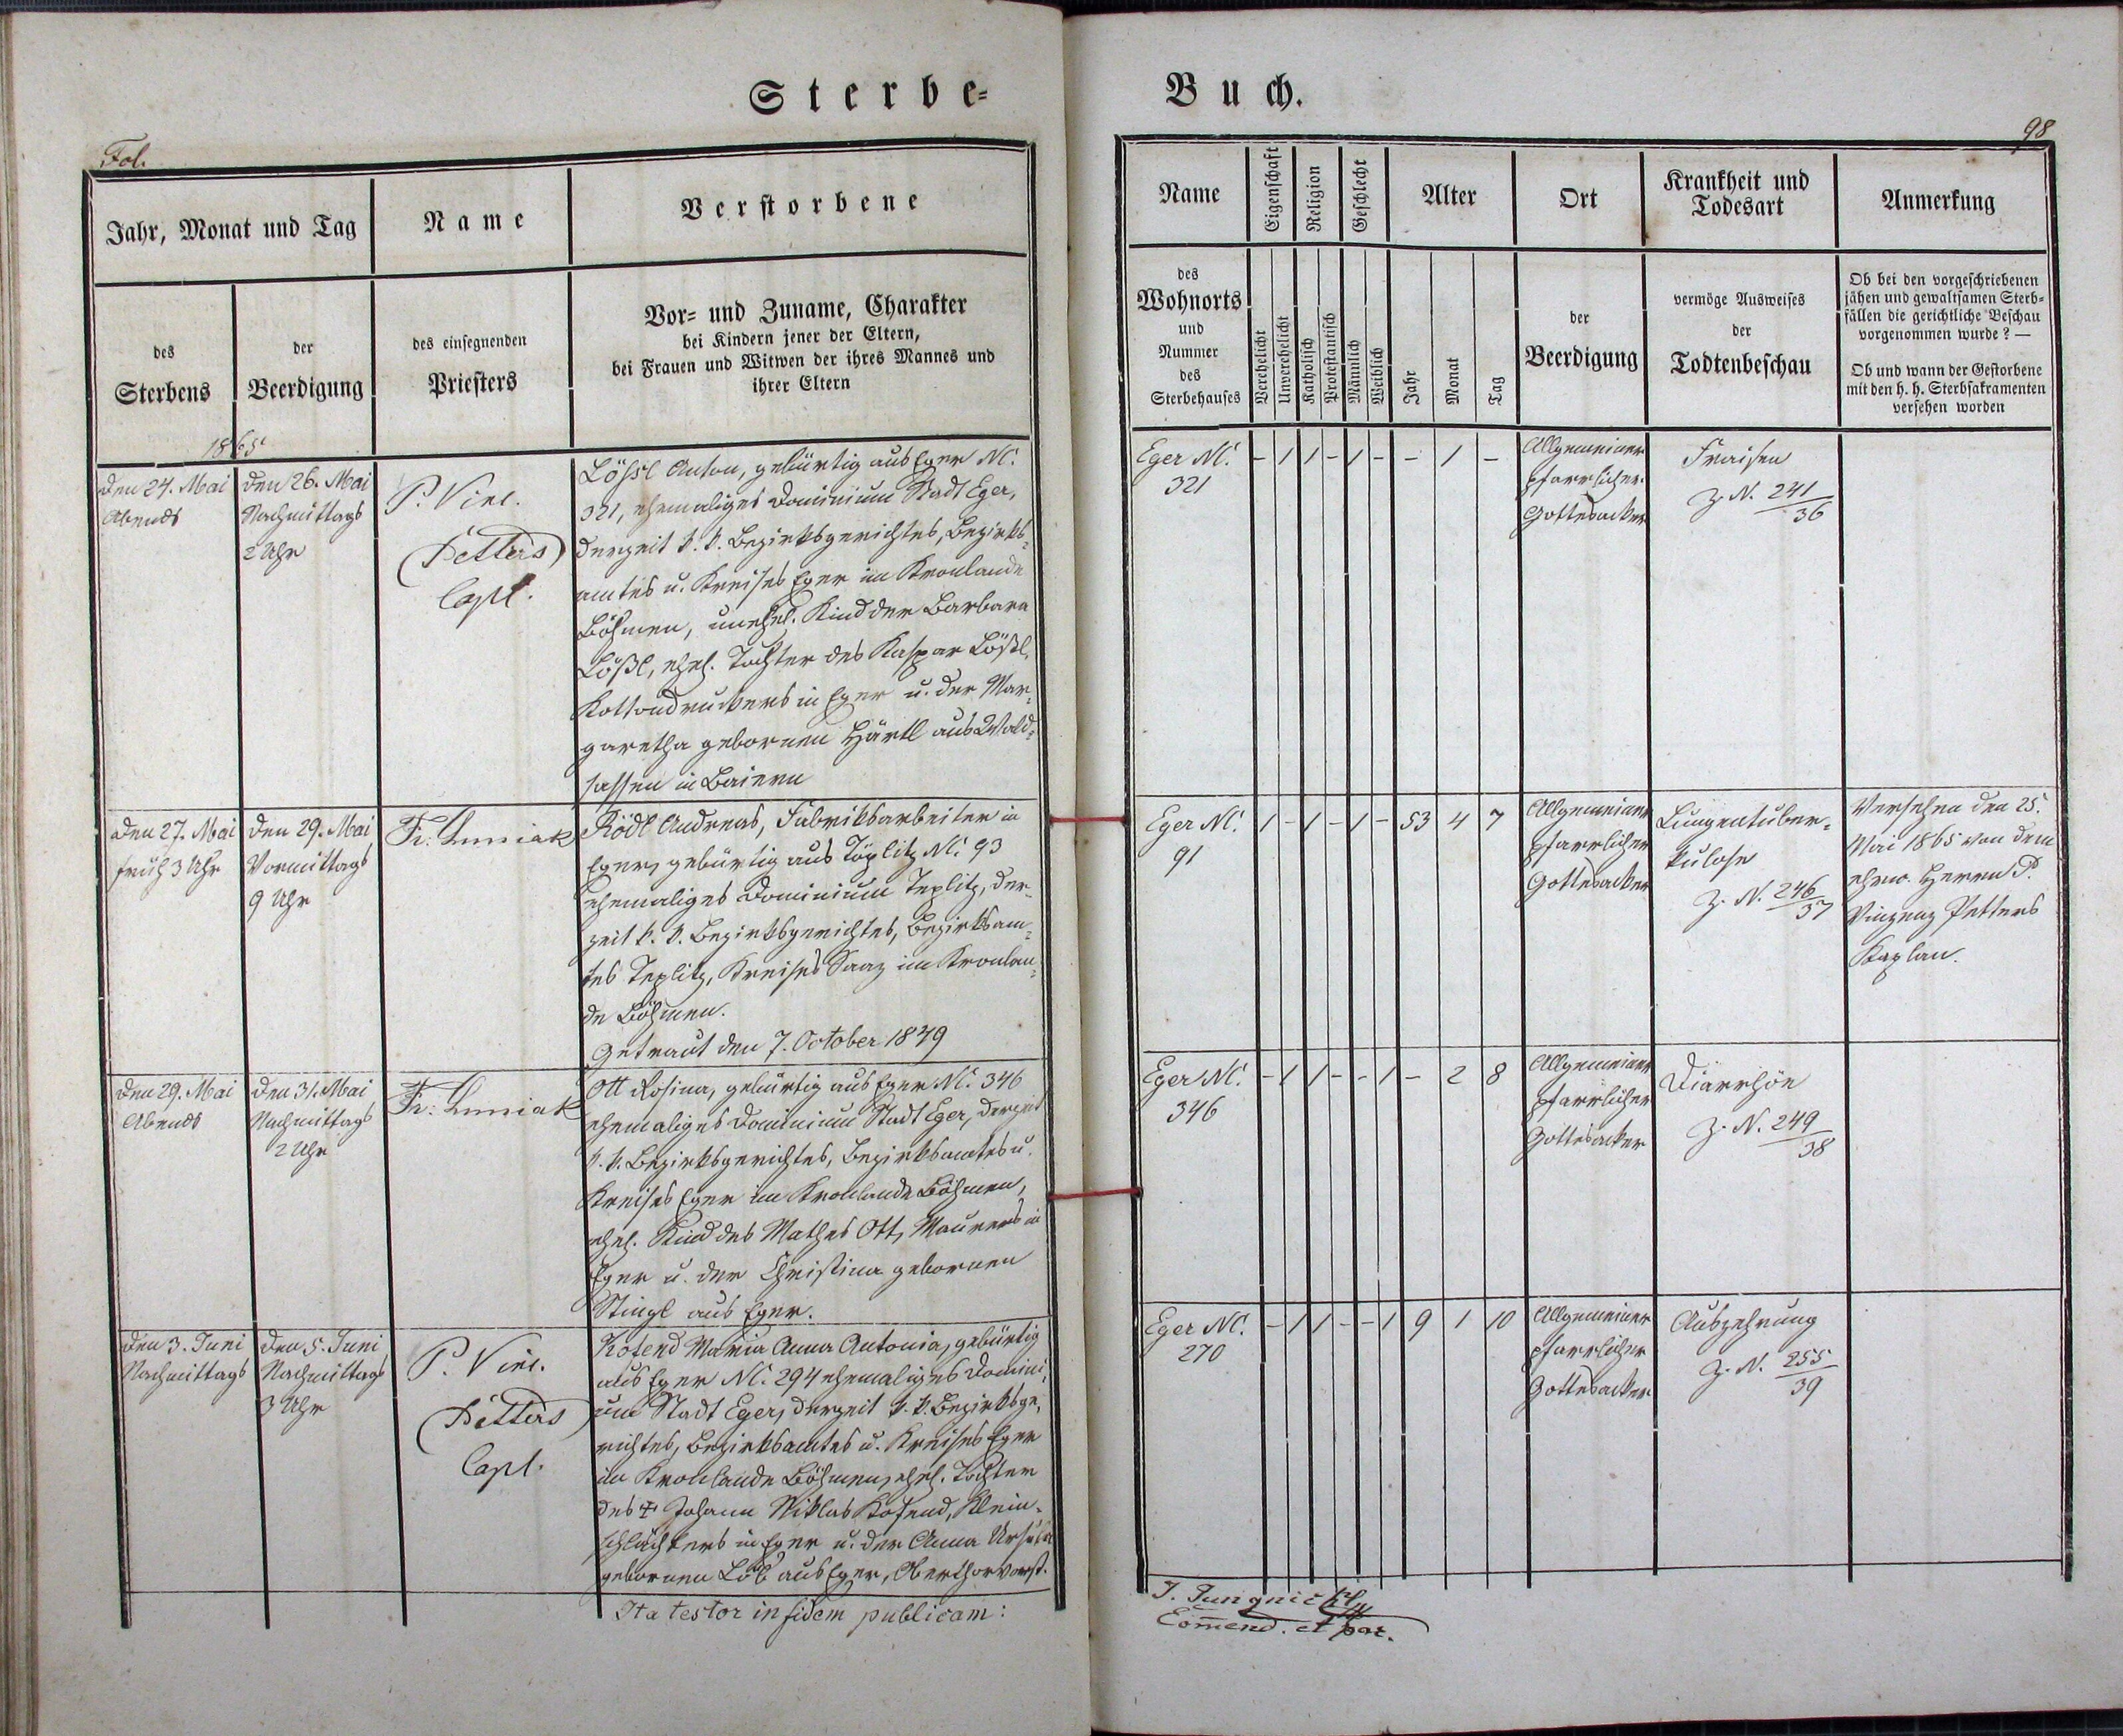 Sterbe-
Buch.
Fol.
98
Jahr, Monat und Tag
Name
Verstorbene
des
Sterbens
der
Beerdigung
des einsegnenden
Priesters
Vor- und Zuname, Charakter
bei Kindern jener der Eltern,
bei Frauen und Witwen der ihres Mannes und
ihrer Eltern
Name
Eigenschaft
Religion
Geschlecht
Alter
Ort
Krankheit und
Todesart
Anmerkung
des
Wohnorts
und
Nummer
des
Sterbehauses
Verehelicht
Unverehelicht
Katholisch
Protestantisch
Männlich
Weiblich
Jahr
Monat
Tag
der
Beerdigung
vermöge Ausweises
der
Todtenbeschau
Ob bei den vorgeschriebenen
jähen und gewaltsamen Sterb-
fällen die gerichtliche Beschau
vorgenommen wurde? —
Ob und wann der Gestorbene
mit den h. h. Sterbsakramenten
versehen worden
1865
Den 24. Mai
Abends
Den 26. Mai
Nachmittags
2 Uhr
P. Vinc.
Petters
Capl.
Lößl Anton, gebürtig aus Eger N.C.
321, ehemaliges Dominium Stadt Eger,
derzeit k. k. Bezirksgerichtes, Bezirks-
amtes u. Kreises Eger im Kronlande
Böhmen, unehel. Kind der Barbara
Lößl, ehel. Tochter des Kaspar Lößl,
Kottondruckers in Eger u. der Mar-
garetha gebornen Härtl aus Wald-
sassen in Baiern
Eger N.C.
321
- 1 1 - 1 - - 1 -
Allgemeiner
pfarrlicher
Gottesacker
Fraisen
Z. N. 241/36
Den 27. Mai
früh 3 Uhr
Den 29. Mai
Vormittags
9 Uhr
Fr. Luniak
Rödl Andreas, Fabriksarbeiter in
Eger, gebürtig aus Töplitz N.C. 93
ehemaliges Dominium Teplitz, der-
zeit k. k. Bezirksgerichtes, Bezirksam-
tes Teplitz, Kreises Saaz im Kronlan-
de Böhmen.
Getraut den 7. October 1849
Eger N.C.
91
1 - 1 - 1 - 53 4 7
Allgemeiner
pfarrlicher
Gottesacker
Lungentuber-
kulose
Z. N. 246/37
Versehen den 25.
Mai 1865 von dem
ehrw. Herrn P.
Vinzenz Petters
Kaplan.
Den 29. Mai
Abends
Den 31. Mai
Nachmittags
2 Uhr
Fr. Luniak
Ott Rosina, gebürtig aus Eger N.C. 346
ehemaliges Dominium Stadt Eger, derzeit
k. k. Bezirksgerichtes, Bezirksamtes u.
Kreises Eger im Kronlande Böhmen,
ehel. Kind des Mathes Ott, Maurers in
Eger u. der Christina gebornen
Stingl aus Eger.
Eger N.C.
346
- 1 1 - - 1 - 2 8
Allgemeiner
pfarrlicher
Gottesacker
Diarrhöe
Z. N. 249/38
Den 3. Juni
Nachmittags
Den 5. Juni
Nachmittags
3 Uhr
P. Vinc.
Petters
Capl.
Kosend Maria Anna Antonia, gebürtig
aus Eger N.C. 294 ehemaliges Domini-
um Stadt Eger, derzeit k. k. Bezirksge-
richtes, Bezirksamtes u. Kreises Eger
im Kronlande Böhmen, ehel. Tochter
des + Johann Niklas Kosend, Klein-
schlächters in Eger u. der Anna Ursula
gebornen Löb aus Eger, Oberthorvorst.
Eger N.C.
270
- 1 1 - - 1 9 1 10
Allgemeiner
pfarrlicher
Gottesacker
Auszehrung
Z. N. 255/39
Ita testor in fidem publicam:
J. Jungnickl
Com̅end. et par.